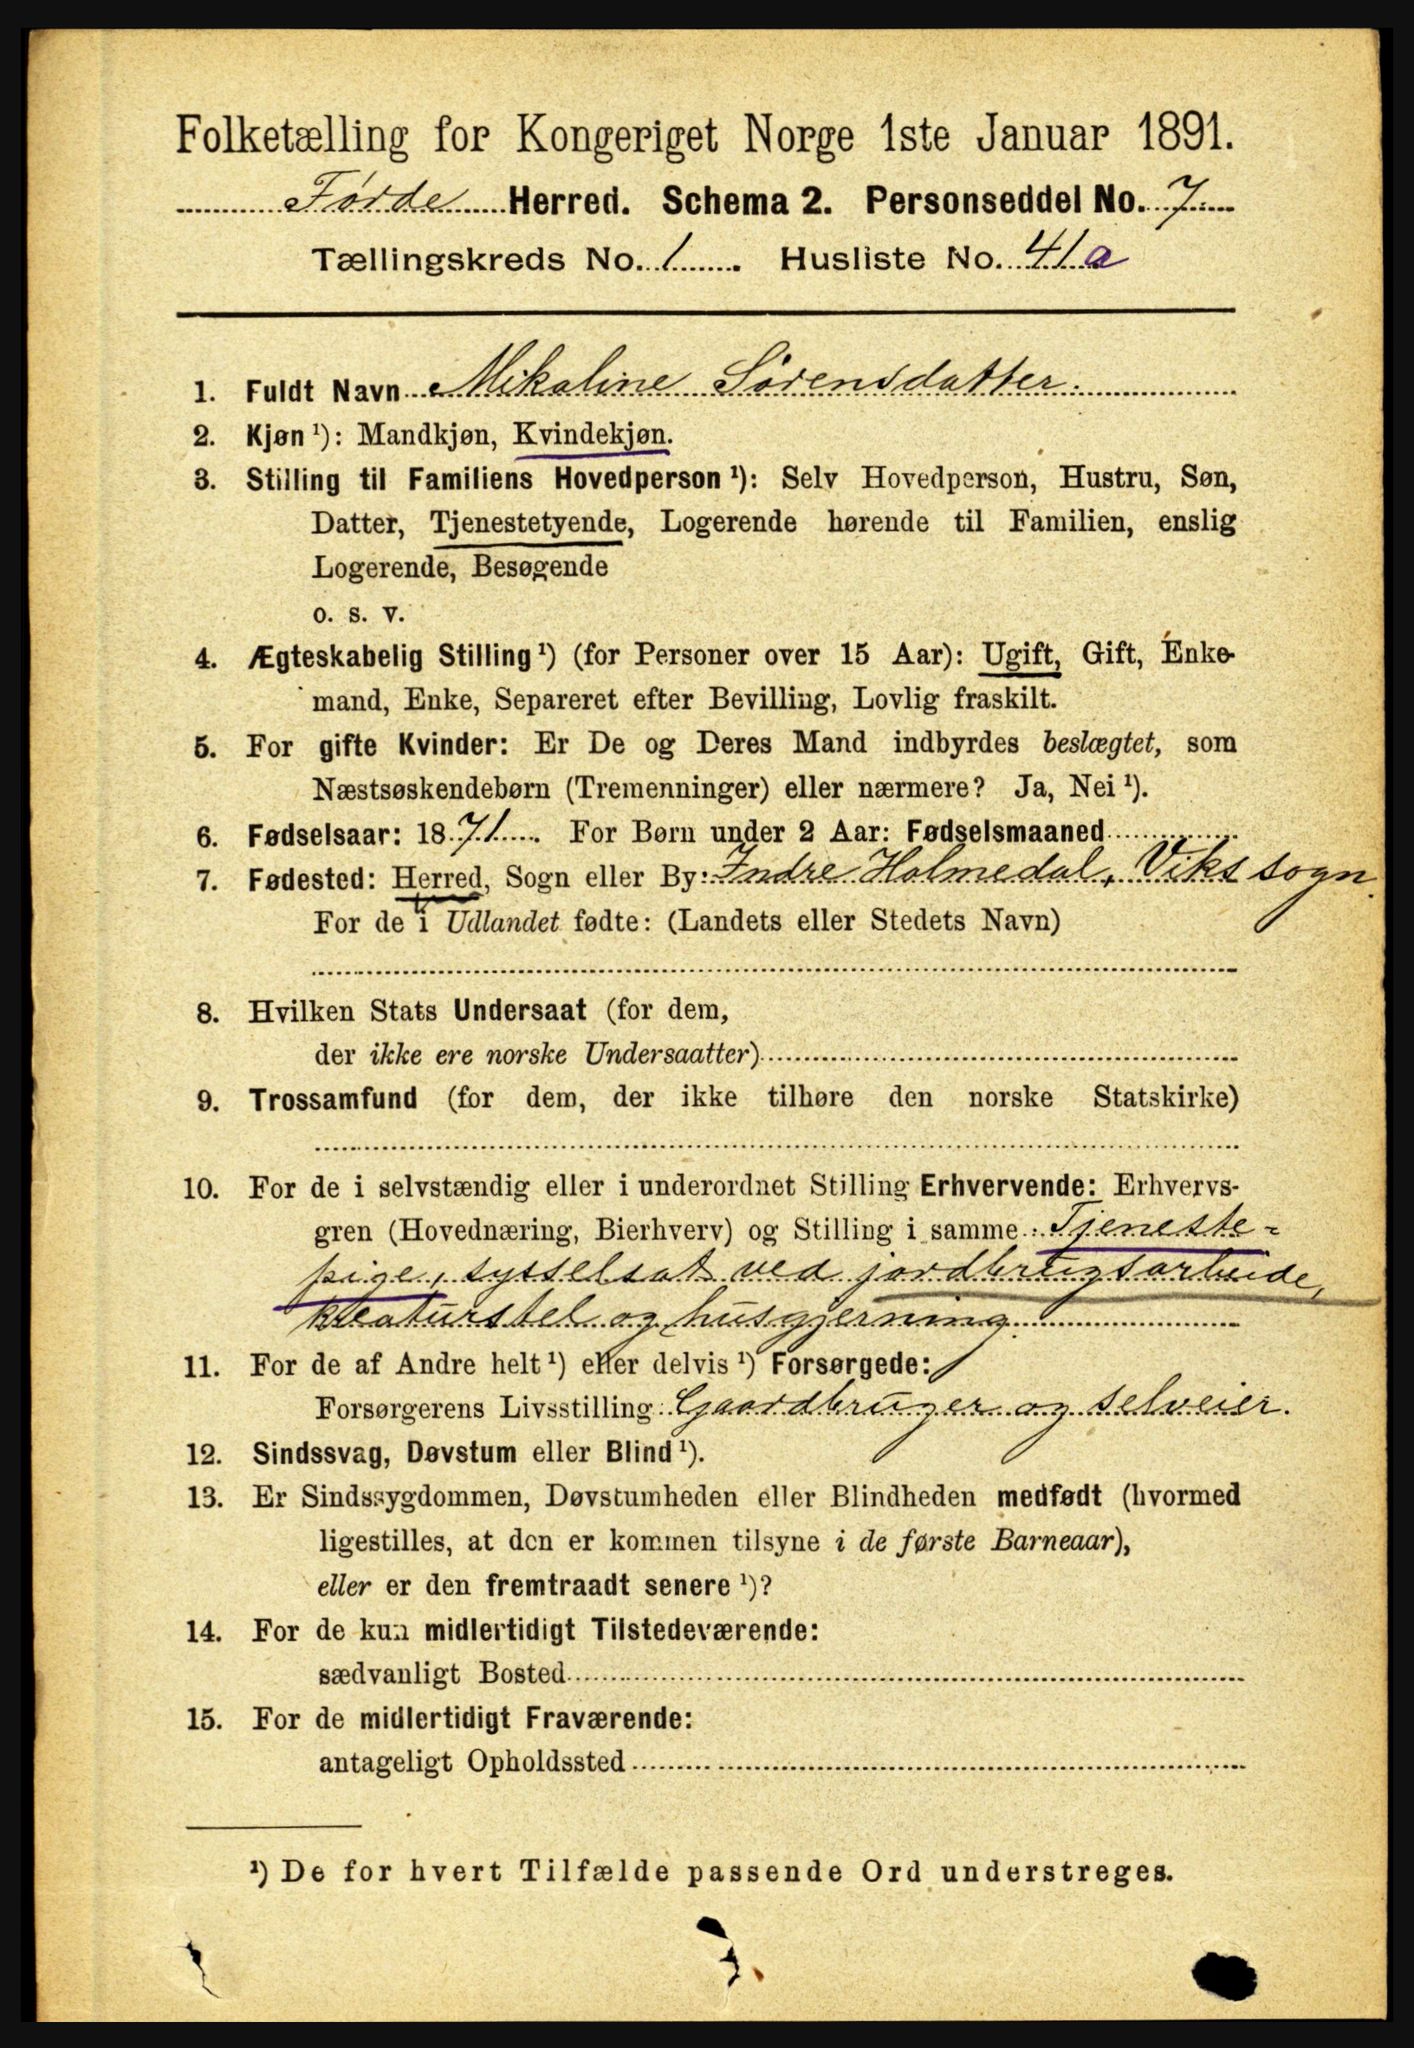 Folketælling for Kongeriget Norge 1ste Januar 1891.
Førde Herred. Schema 2. Personseddel No. 7
Tællingskreds No. 1. Husliste No. 41a
1. Fuldt Navn Mikaline Sørensdatter.
2. Kjøn¹): Mandkjøn, Kvindekjøn.
3. Stilling til Familiens Hovedperson¹): Selv Hovedperson, Hustru, Søn,
Datter, Tjenestetyende, Logerende hørende til Familien, enslig
Logerende, Besøgende
o. s. v.
4. Ægteskabelig Stilling¹) (for Personer over 15 Aar): Ugift, Gift, Enke-
mand, Enke, Separeret efter Bevilling, Lovlig fraskilt.
5. For gifte Kvinder: Er De og Deres Mand indbyrdes beslægtet, som
Næstsøskendebørn (Tremenninger) eller nærmere? Ja, Nei¹).
6. Fødselsaar: 1871. For Børn under 2 Aar: Fødselsmaaned
7. Fødested: Herred, Sogn eller By: Indre Holmedal, Viks sogn.
For de i Udlandet fødte: (Landets eller Stedets Navn)
8. Hvilken Stats Undersaat (for dem,
der ikke ere norske Undersaatter)
9. Trossamfund (for dem, der ikke tilhøre den norske Statskirke)
10. For de i selvstændig eller i underordnet Stilling Erhvervende: Erhvervs-
gren (Hovednæring, Bierhverv) og Stilling i samme Tjeneste-
pige, sysselsat ved jordbrugsarbeide,
kreaturstel og husgjerning.
11. For de af Andre helt¹) eller delvis¹) Forsørgede:
Forsørgerens Livsstilling Gaardbruger og selveier.
12. Sindssvag, Døvstum eller Blind¹).
13. Er Sindssygdommen, Døvstumheden eller Blindheden medfødt (hvormed
ligestilles, at den er kommen tilsyne i de første Barneaar),
eller er den fremtraadt senere¹)?
14. For de kun midlertidigt Tilstedeværende:
sædvanligt Bosted
15. For de midlertidigt Fraværende:
antageligt Opholdssted
¹) De for hvert Tilfælde passende Ord understreges.